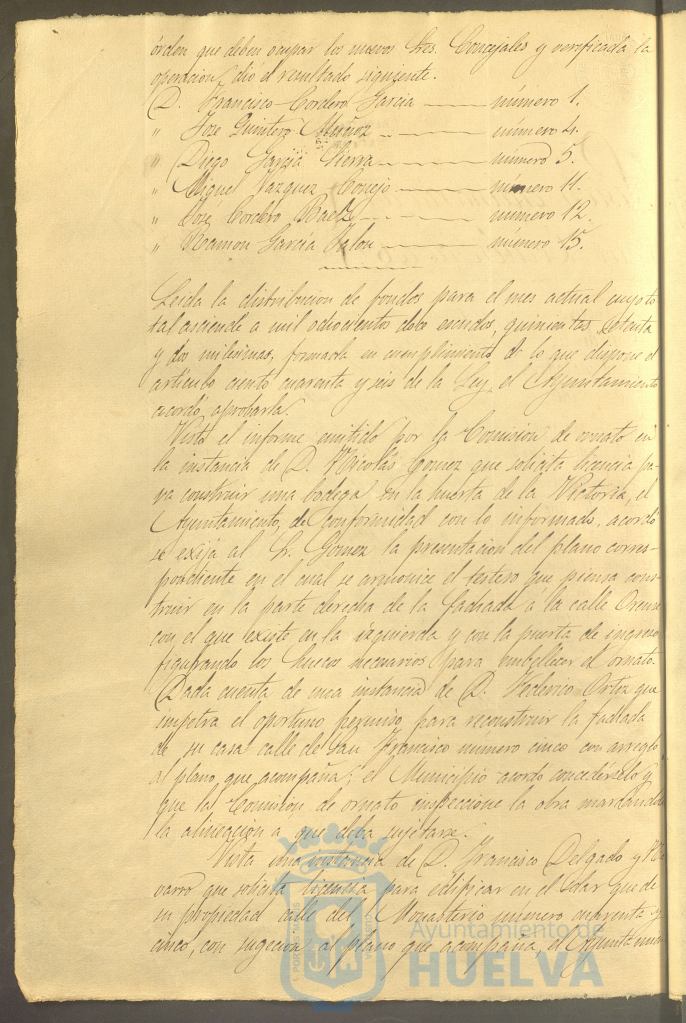 órden que deben ocupar los nuevos Sres. Concejales y verificada la
operacion, dió el resultado siguiente.
D. Francisco Cordero Garcia número 1.
" Jose Quintero Muñoz número 4.
" Diego Garcia Sierra número 5.
" Miguel Vazquez Conejo número 11.
" Jose Cordero Baez número 12.
" Ramon Garcia número 15.
Leida la distribucion de fondos para el mes actual cuyo to
tal asciende a mil ochocientos doce escudos, quinientas setenta
y dos milésimas, formada en cumplimiento de lo que dispone el
articulo ciento cuarenta y seis de la Ley, el Ayuntamiento
acordó aprobarla.
Visto el informe emitido por la Comision de ornato en
la instancia de D. Nicolás Gomez que solicita licencia pa-
ra construir una bodega en la huerta de la Victoria, el
Ayuntamiento, de conformidad con lo informado, acordó
se exija al Sr. Gomez la presentacion del plano corres-
pondiente en el cual se armonice el testero que piensa cons-
truir en la parte derecha de la fachada á la calle
con el que existe en la izquierda y con la puerta de ingreso
figurando los huecos necesarios para embellecer el ornato.
Dada cuenta de una instancia de D. Federico Ortiz que
impetra el oportuno permiso para reconstruir la fachada
de su casa calle de San Francisco numero cinco con arreglo
al plano que acompaña; el Municipio acordó concedérselo y
que la Comision de ornato inspeccione la obra marcándole
la alineacion a que deba sujetarse.
Vista una instancia de D. Francisco Delgado y Na
varro que solicita licencia para edificar en el solar que de
su propiedad calle del Monasterio número cuarenta y
cinco, con sugecion al plano que acompaña, el Ayuntamien
Ayuntamiento de
HUELVA